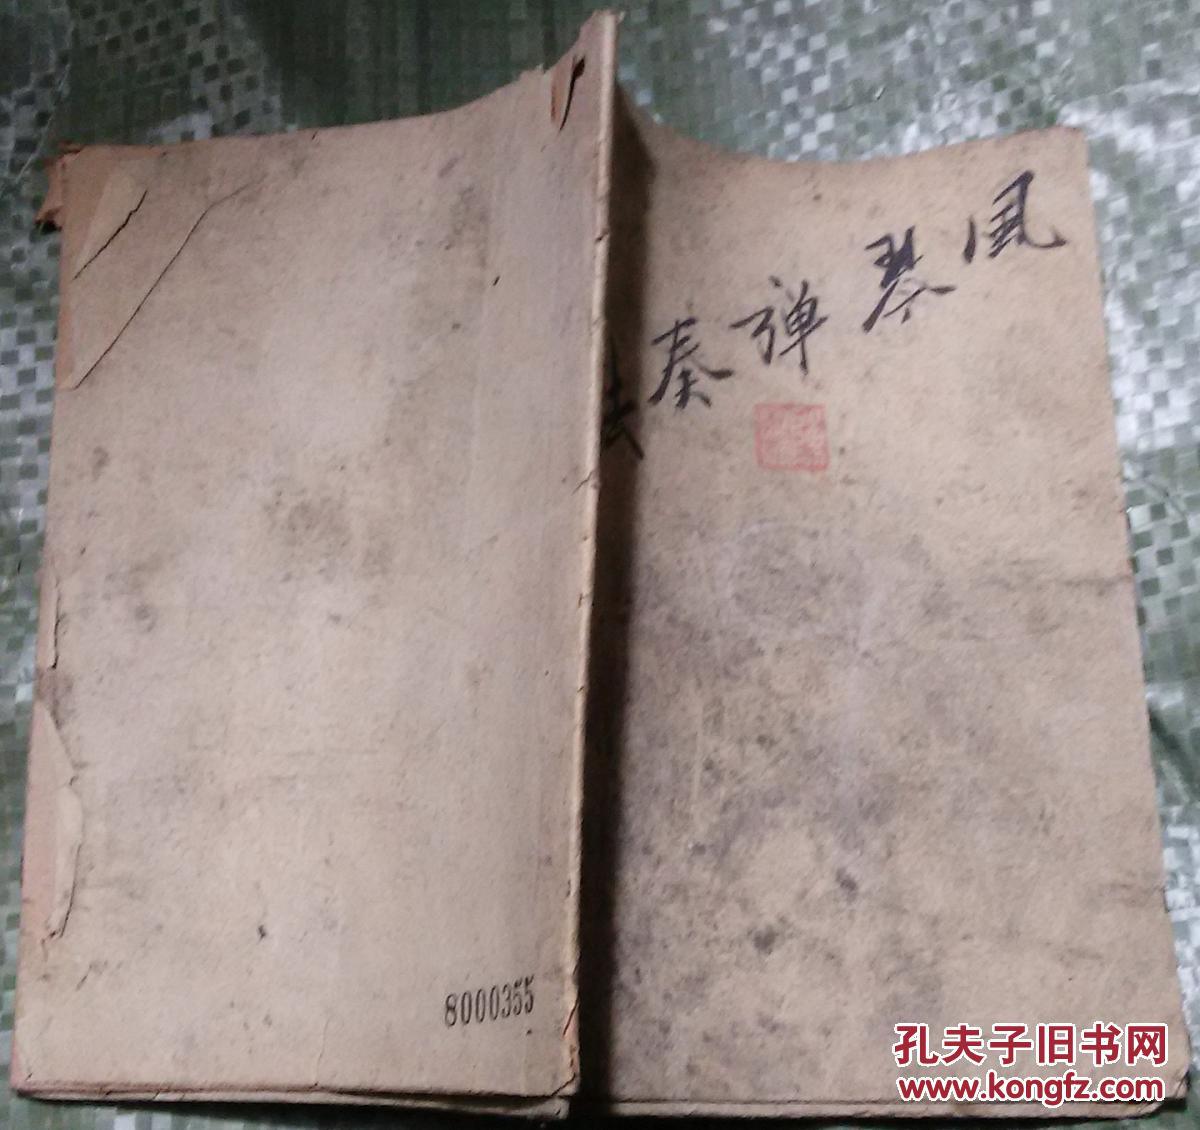 风琴弹奏法
8000355
孔夫子旧书网
www.kongfz.com